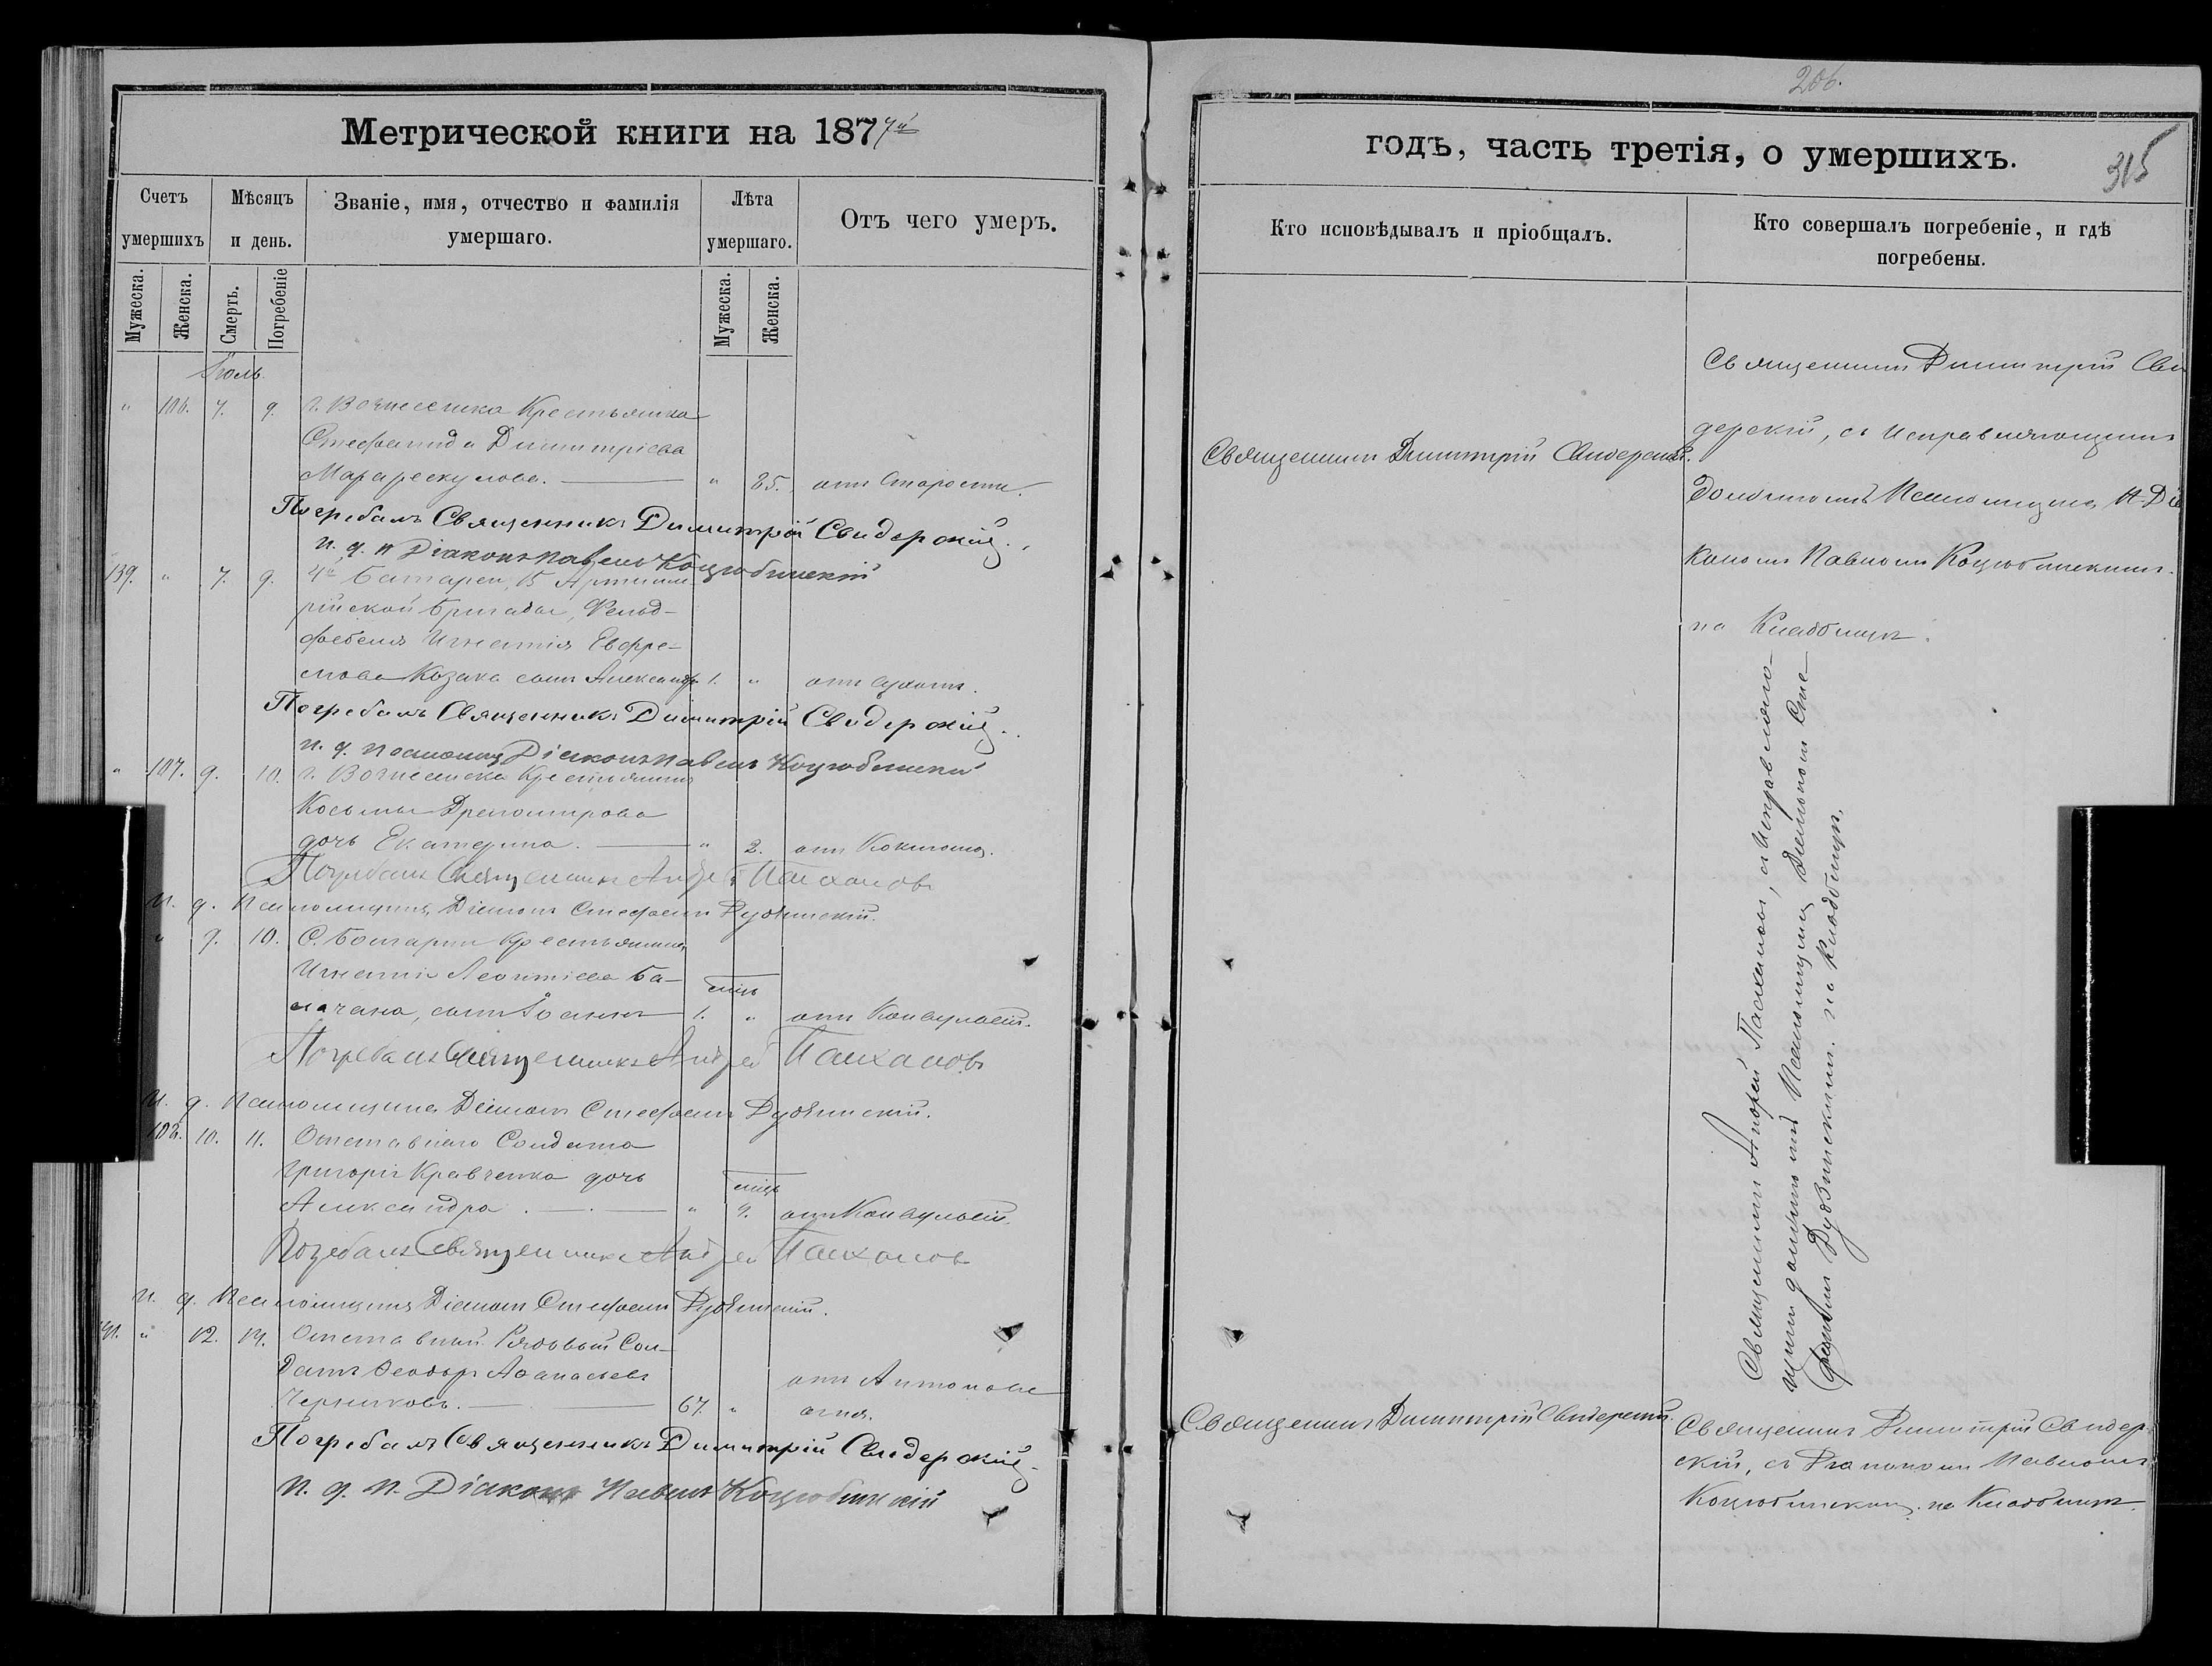 206.
315
Метрической книги на 1877й
годъ, часть третія, о умершихъ.
Счетъ умершихъ
Мѣсяцъ и день.
Званіе, имя, отчество и фамилія умершаго.
Лѣта умершаго.
Отъ чего умеръ.
Кто исповѣдывалъ и пріобщалъ.
Кто совершалъ погребеніе, и гдѣ погребены.
Мужеска.
Женска.
Смерть.
Погребеніе
Мужеска.
Женска.
Іюль
" 106. 7. 9. г. Вознесенска Крестьянка
Стефанида Димитріева
" 85. отъ Старости.
Священникъ Димитрій Свидерскій.
Священникъ Димитрій Сви
дерскій, съ Исправляющимъ
должность Псаломщика Н. Діа
кономъ Павломъ Коцюбинскимъ.
на Кладбищѣ.
Погребалъ Священникъ Димитрій Свидерскій.
и. д. п Діаконъ Павелъ Коцюбинскій
139. " 7. 9. 4й Батареи, 15 Артилле
рійской Бригады, Фельд-
фебеля Игнатія Евфре-
мова Козака сынъ Александръ 1. "
Погребалъ Священникъ Димитрій Свидерскій.
и. д. псаломщ Діаконъ Павелъ Коцюбинскій
" 107. 9. 10. г. Вознесенска Крестьянина
Косьмы
дочь Екатерина. " 2. отъ Коклюша.
Погребалъ Священникъ Андрей Палхановъ
И. д. Псаломщика Діаконъ Стефанъ Рудзинскій.
" 9. 10. С. Болгарки Крестьянина
Игнатія Леонтіева Ба-
лачана, сынъ Іоаннъ мѣс 1. " отъ Конвульсій.
Погребалъ Священникъ Андрей Палхановъ
И. д. Псаломщика Діаконъ Стефанъ Рудзинскій.
108. 10. 11. Отставнаго Солдата
Григорія Кравченка дочь
Александра. " мѣс 9. отъ Конвульсій.
Погребалъ Священникъ Андрей Палхановъ
И. д. Псаломщика Діаконъ Стефанъ Рудзинскій.
Священникъ Андрей Палхановъ, съ Исправляю-
щимъ должность Псаломщика Діакономъ Сте-
фаномъ Рудзинскимъ. на Кладбищѣ.
141. " 12. 14. Отставный Рядовый Сол-
датъ Ѳеодоръ Аѳанасьевъ
Черниковъ. 67. " отъ Антонова
огня.
Священникъ Димитрій Свидерскій.
Священникъ Димитрій Свидер-
скій, съ Діакономъ Павломъ
Коцюбинскимъ. на Кладбищѣ.
Погребалъ Священникъ Димитрій Свидерскій
и. д. п. Діаконъ Павелъ Коцюбинскій